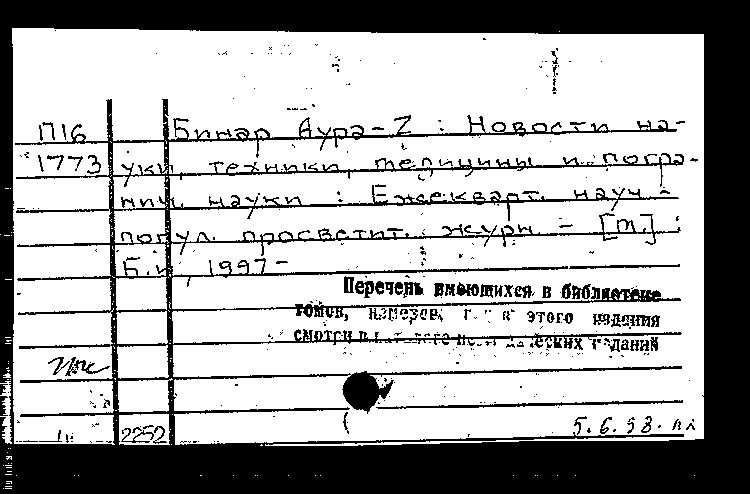 П16 Бинар Аура-Z : Новости на-
1773 уки, техники, медицины и погра-
нич. науки : Ежекварт. науч.-
попул. просветит. журн. - [М.] :
Б.и., 1997-
Перечень имеющихся в библиотеке
томов, номеров, этого издания
смотри в изданий
2252 5.6.98.